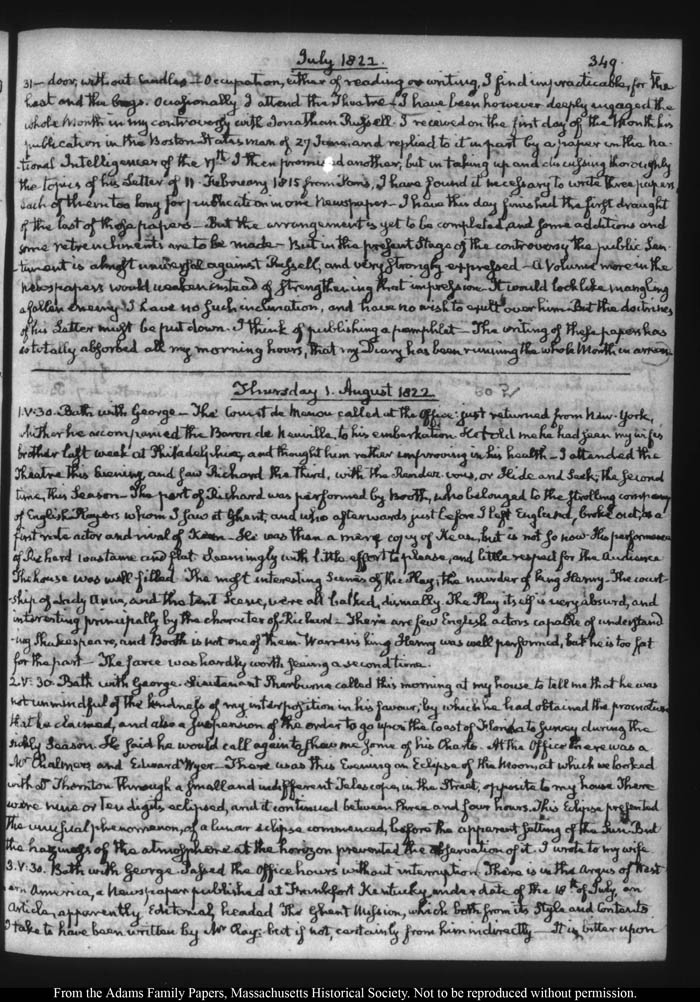 July 1822. 349.
31— door, without Candles — Occupation, either of reading or writing, I find impracticable, for the
heat and the bugs. Occasionally I attend the Theatre — I have been however deeply engaged the
whole Month in my controversy with Jonathan Russell. I received on the first day of the Month his
publication in the Boston Statesman of 27 June, and replied to it in part by a paper in the Na-
-tional Intelligencer of the 17th. I then promised another, but in taking up and discussing thoroughly
the topics of his Letter of 11 February 1815 from Paris, I have found it necessary to write three papers,
each of them too long for publication in one Newspaper. I have this day finished the first draught
of the last of these papers — But the arrangement is yet to be completed, and some additions and
some retrenchments are to be made — But in the present Stage of the controversy the public Sen-
-timent is almost universal against Russell, and very strongly expressed — A Volume more in the
newspapers would weaken instead of strengthening that impression. It would look like mangling
a fallen enemy. I have no such inclination, and have no wish to exult over him. But the doctrines
of his Letter must be put down. I think of publishing a pamphlet — The writing of these papers has
so totally absorbed all my morning hours, that my Diary has been running the whole Month in arrear
Thursday 1. August 1822.
1. V:30. Bath with George — The Count de Menou called at the Office: just returned from New-York,
whither he accompanied the Baron de Neuville, to his embarkation. He told me he had seen my wife's
brother last week at Philadelphia, and thought him rather improving in his health — I attended the
Theatre this Evening, and saw Richard the third, with the Rendez-vous, or Hide and Seek, the second
time, this Season — The part of Richard was performed by Booth, who belonged to the strolling company
of English Players whom I saw at Ghent, and who afterwards just before I left England, broke out, as a
first rate actor and rival of Kean — He was then a mere copy of Kean, but is not so now. His performance
of Richard was tame and flat seemingly with little effort to please, and little respect for the Audience
The house was well filled. The most interesting Scenes of the Play, the murder of king Henry — The court-
-ship of Lady Anne, and the tent Scene, were all balked, dismally. The Play itself is very absurd, and
interesting principally by the character of Richard — There are few English actors capable of understand-
-ing Shakespeare, and Booth is not one of them. Warren's king Henry was well performed, but he is too fat
for the part — The farce was hardly worth seeing a second time.
2. V:30. Bath with George. Lieutenant called this morning at my house to tell me that he was
not unmindful of the kindness of my interposition in his favour, by which he had obtained the promotion
that he claimed, and also a suspension of the order to go upon the Coast of Florida to survey during the
sickly Season. He said he would call again to shew me some of his Charts. At the Office there was a
Mr Chalmers and Edward Wyer — There was this Evening an Eclipse of the Moon, at which we looked
with Dr Thornton through a small and indifferent Telescope, in the Street, opposite to my house There
were nine or ten digits eclipsed, and it continued between three and four hours. This Eclipse presented
the unusual phenomenon, of a lunar eclipse commenced, before the apparent setting of the Sun. But
the haziness of the atmosphere at the horizon prevented the observation of it. I wrote to my wife.
3. V:30. Bath with George. Passed the Office hours without interruption. There is in the Argus of West-
-ern America, a Newspaper published at Frankfort Kentucky, under date of the 18th of July, an
Article, apparently Editorial, headed The Ghent Mission, which both from its style and contents
I take to have been written by Mr Clay: but if not, certainly from him indirectly — It is bitter upon
From the Adams Family Papers, Massachusetts Historical Society. Not to be reproduced without permission.